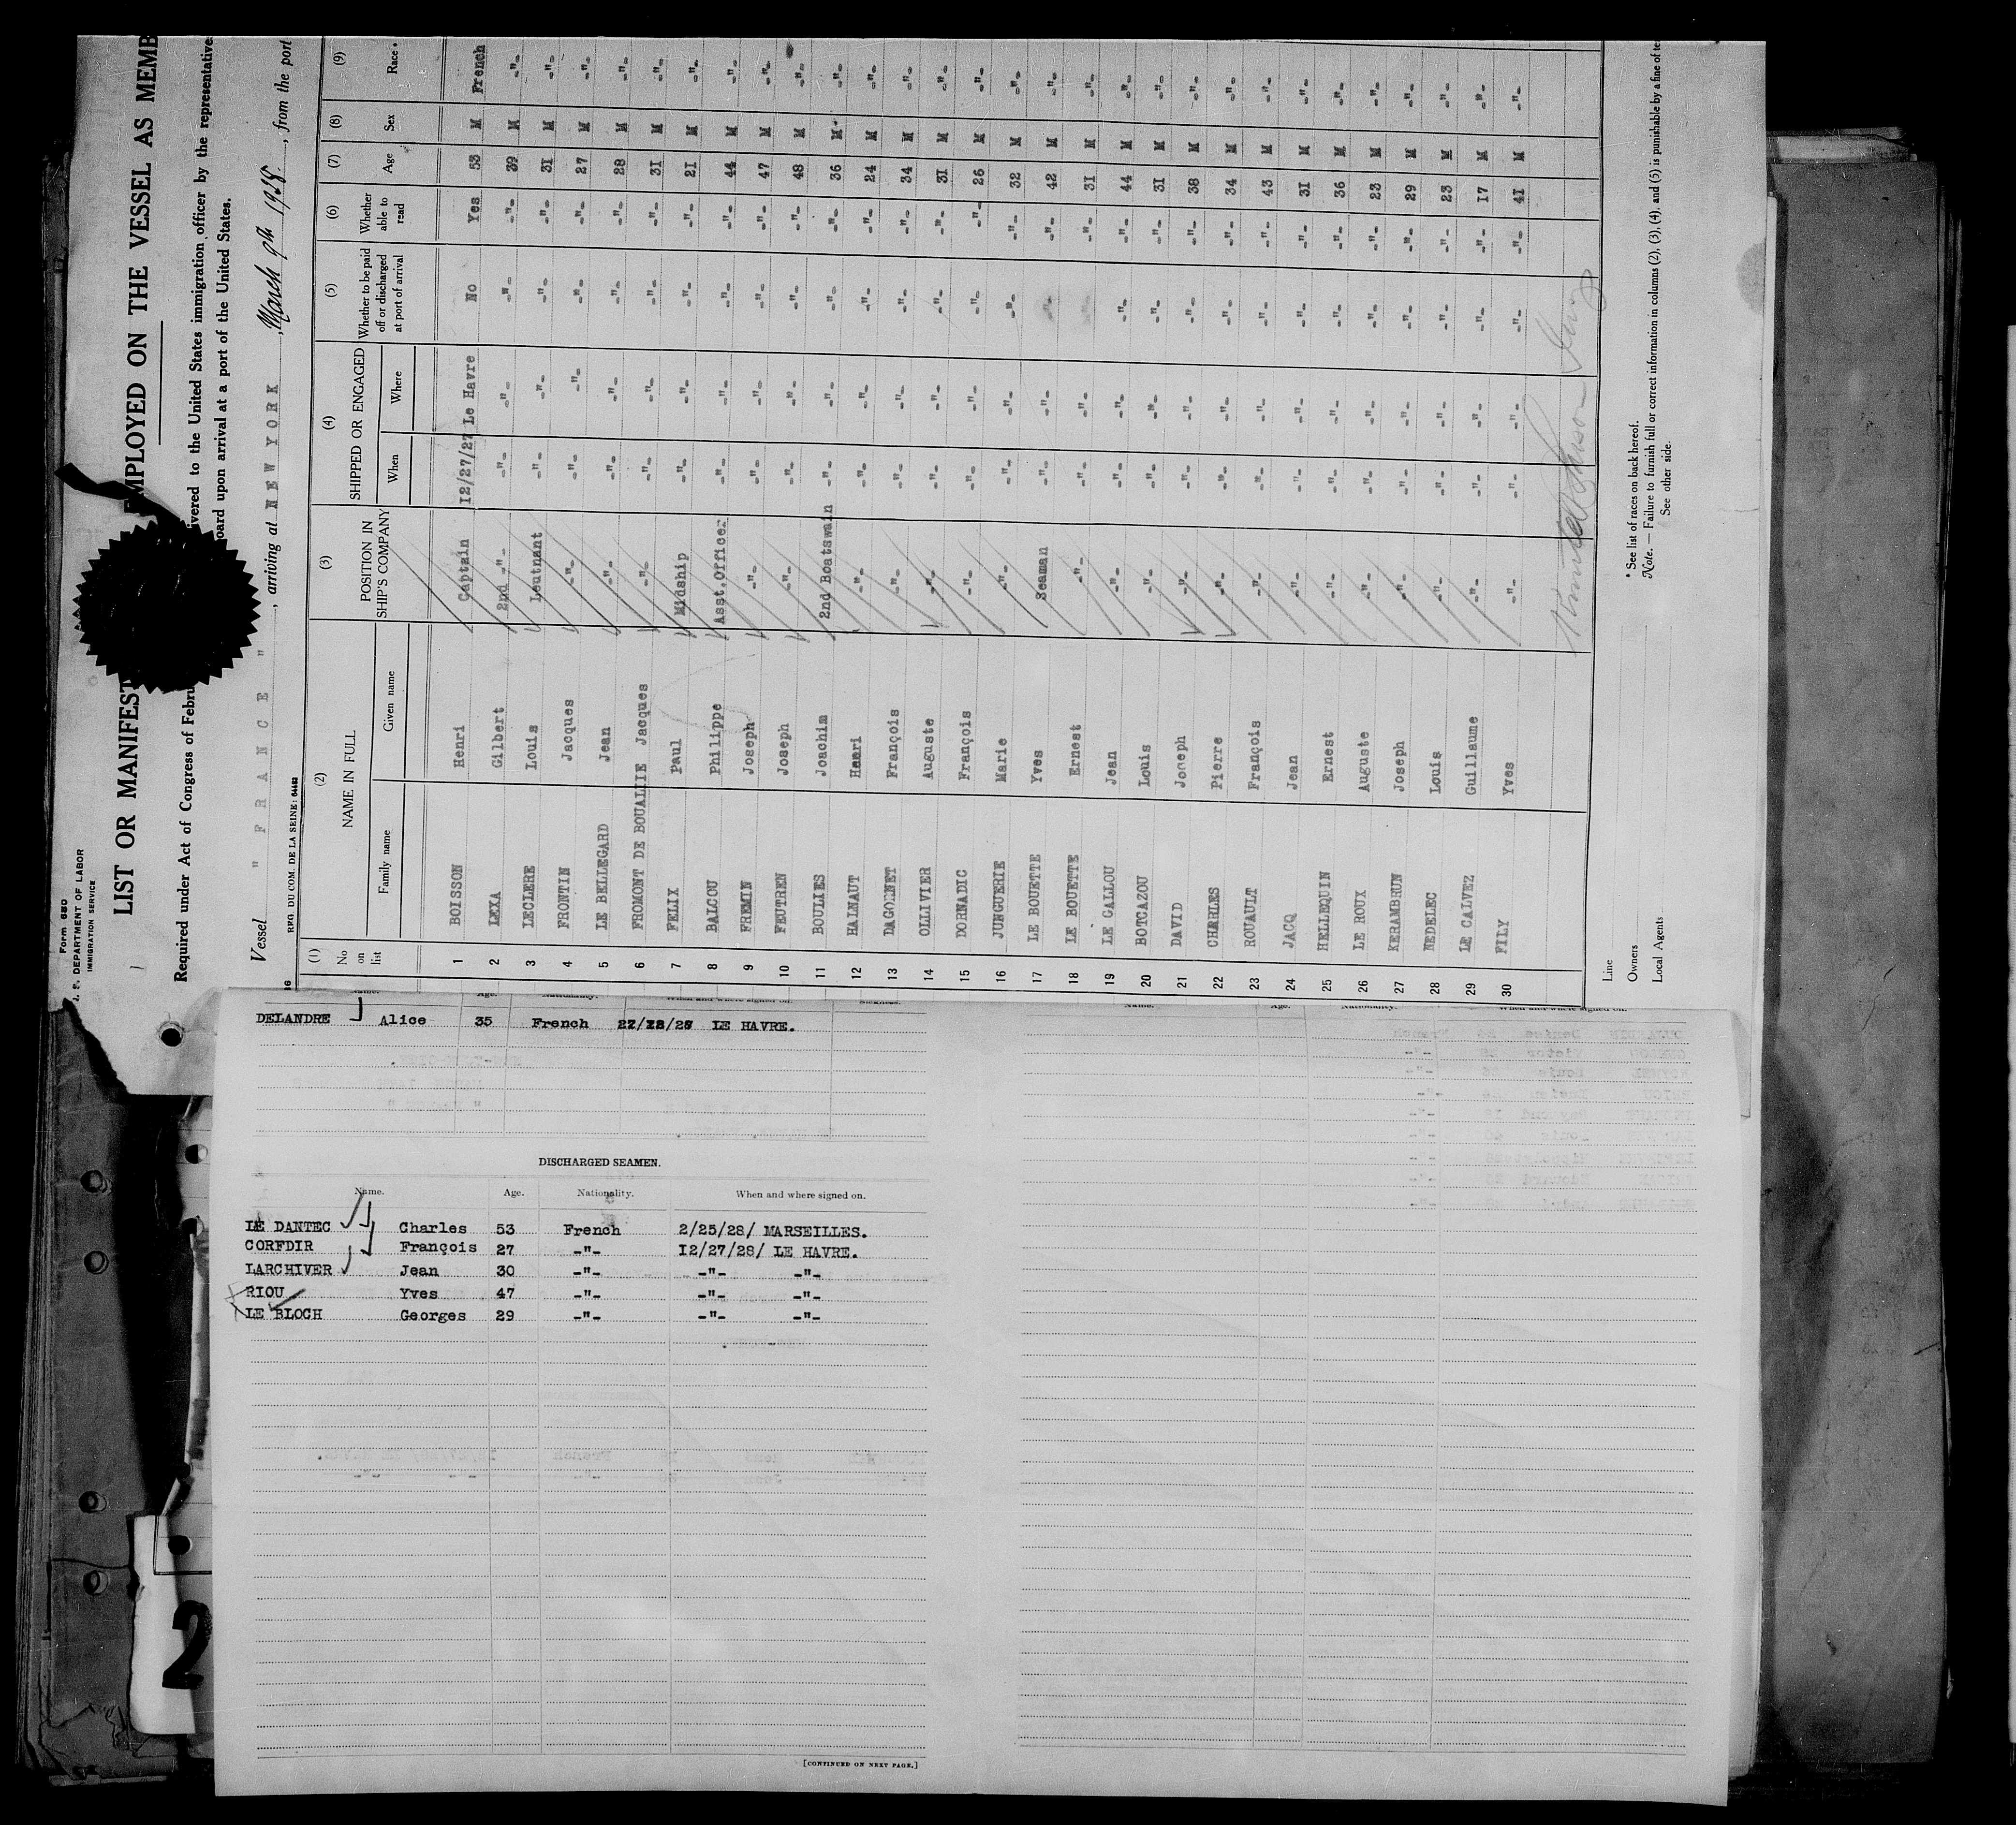 Form 680
U. S. DEPARTMENT OF LABOR
IMMIGRATION SERVICE
LIST OR MANIFEST EMPLOYED ON THE VESSEL AS MEMB
Required under Act of Congress of Febru ivered to the United States immigration officer by the representative
oard upon arrival at a port of the United States.
Vessel " F R A N C E ", arriving at N E W Y O R K, March 9th 1928, from the port
REG. DU COM. DE LA SEINE: 64482
(1) (2) (3) (4) (5) (6) (7) (8) (9)
No on list NAME IN FULL POSITION IN SHIP'S COMPANY SHIPPED OR ENGAGED Whether to be paid off or discharged at port of arrival Whether able to read Age Sex Race *
Family name Given name When Where
1 BOISSON Henri Captain 12/27/27 Le Havre No Yes 53 M French
2 LEXA Gilbert 2nd -"- -"- -"- -"- -"- 39 M -"-
3 LECLERE Louis Leutnant -"- -"- -"- -"- 31 M -"-
4 FRONTIN Jacques -"- -"- -"- -"- -"- 27 M -"-
5 LE BELLEGARD Jean -"- -"- -"- -"- -"- 28 M -"-
6 FROMONT DE BOUALLIE Jacques -"- -"- -"- -"- -"- 31 M -"-
7 FELIX Paul Midship -"- -"- -"- -"- 21 M -"-
8 BALCOU Philippe Asst.Officer -"- -"- -"- -"- 44 M -"-
9 FREMIN Joseph -"- -"- -"- -"- -"- 47 M -"-
10 FEUTREN Joseph -"- -"- -"- -"- -"- 48 M -"-
11 BOULIES Joachim 2nd Boatswain -"- -"- -"- -"- 36 M -"-
12 HAINAUT Henri -"- -"- -"- -"- -"- 24 M -"-
13 DAGORNET François -"- -"- -"- -"- -"- 34 M -"-
14 OLLIVIER Auguste -"- -"- -"- -"- -"- 31 M -"-
15 DORNADIC François -"- -"- -"- -"- -"- 26 M -"-
16 JUNGUERIE Marie -"- -"- -"- -"- -"- 32 M -"-
17 LE BOUETTE Yves Seaman -"- -"- -"- -"- 42 M -"-
18 LE BOUETTE Ernest -"- -"- -"- -"- 31 M -"-
19 LE GALLOU Jean -"- -"- -"- -"- -"- 44 M -"-
20 BOTCAZOU Louis -"- -"- -"- -"- -"- 31 M -"-
21 DAVID Joseph -"- -"- -"- -"- -"- 38 M -"-
22 CHARLES Pierre -"- -"- -"- -"- -"- 34 M -"-
23 ROUAULT François -"- -"- -"- -"- -"- 43 M -"-
24 JACQ Jean -"- -"- -"- -"- -"- 31 M -"-
25 HELLEQUIN Ernest -"- -"- -"- -"- -"- 36 M -"-
26 LE ROUX Auguste -"- -"- -"- -"- -"- 23 M -"-
27 KERAMBRUN Joseph -"- -"- -"- -"- -"- 29 M -"-
28 NEDELEC Louis -"- -"- -"- -"- -"- 23 M -"-
29 LE CALVEZ Guillaume -"- -"- -"- -"- -"- 17 M -"-
30 FILY Yves -"- -"- -"- -"- -"- 41 M -"-
Line
Owners
Local Agents
* See list of races on back hereof.
Note. — Failure to furnish full or correct information in columns (2), (3), (4), and (5) is punishable by a fine of te
See other side.
Name. Age. Nationality. When and where signed on.
DELANDRE Alice 35 French LE HAVRE.
Name. Age. Nationality. When and where signed on.
DISCHARGED SEAMEN.
Name. Age. Nationality. When and where signed on.
LE DANTEC Charles 53 French 2/25/28/ MARSEILLES.
CORFDIR François 27 -"- 12/27/28/ LE HAVRE.
LARCHIVER Jean 30 -"- -"- -"-
RIOU Yves 47 -"- -"- -"-
LE BLOCH Georges 29 -"- -"- -"-
[CONTINUED ON NEXT PAGE.]
2